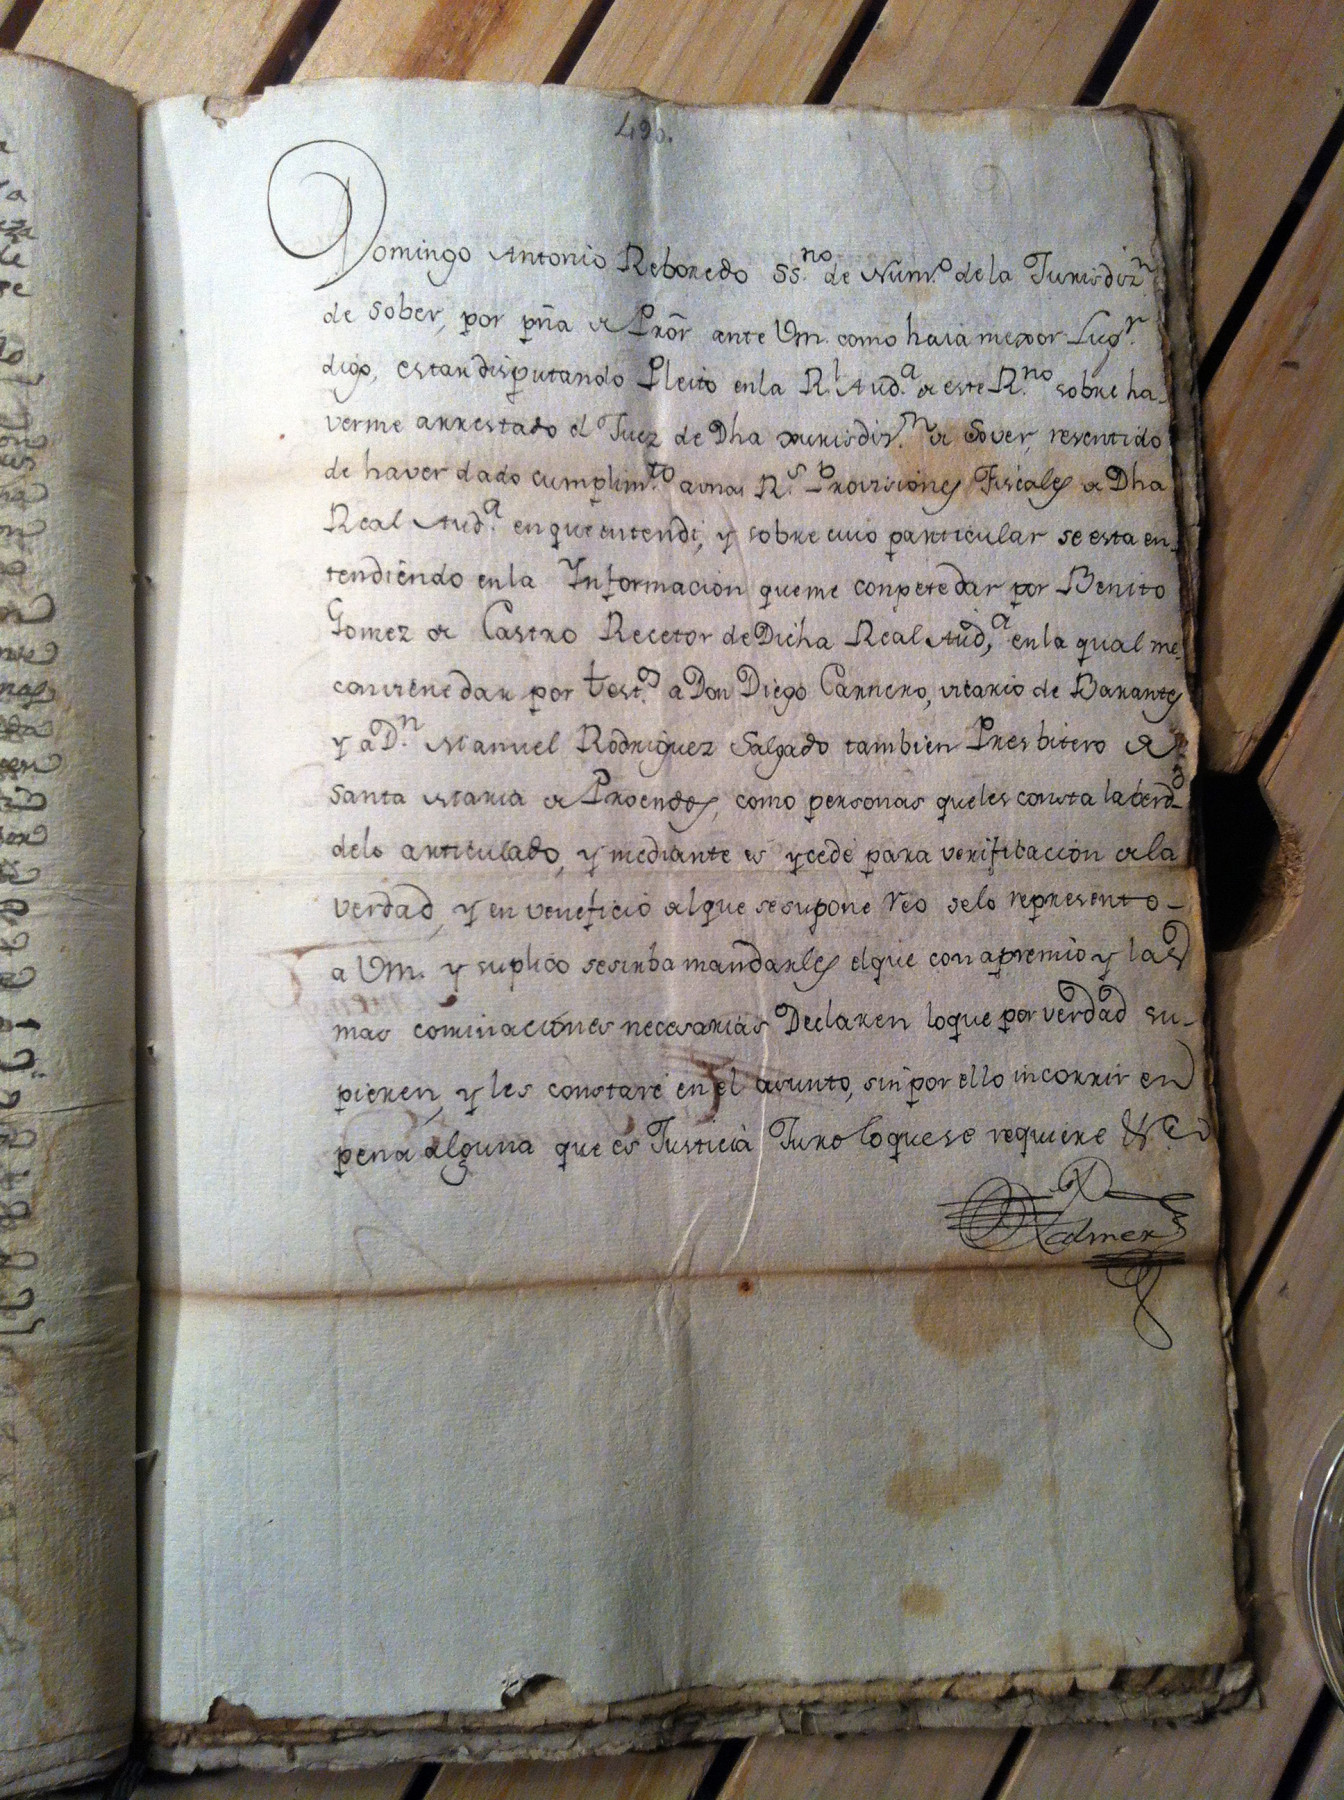 490.
Domingo Antonio Reboredo SS.no de Núm.o de la Jurisdiz.n
de Sober, por pña de Prõr ante Vm. como haia mexor Lugr.
digo, estar disputando Pleito en la Rl Aud.a de este R.no sobre ha-
verme arrestado el Juez de Dha xurisdiz.n de Sover, resentido
de haver dado cumplim.to a unas R.s Provisiones Fiscales de Dha
Real Aud.a en que entendi, y sobre cuio particular se esta en-
tendiendo en la Informacion que me conpete dar por Benito
Gomez de Castro Recetor de Dicha Real Aud,a en la qual me
conviene dar por test.os a Don Diego Carnero, vicario de Barantes
y a D.n Manuel Rodriguez Salgado tambien Presbitero de
Santa Maria de Proendos, como personas que les consta la berd.d
delo articulado, y mediante es ycede para verificacion de la
verdad, y en veneficio del que se supone reo se lo represento-
a Vm. y suplico se sirba mandarles el que con apremio y las
mas cominaciones necesarias Declaren lo que por verdad su-
pieren, y les constare en el asunto, sin por ello incorrir en
pena alguna que es Justicia Juro lo que se requiere &c.a